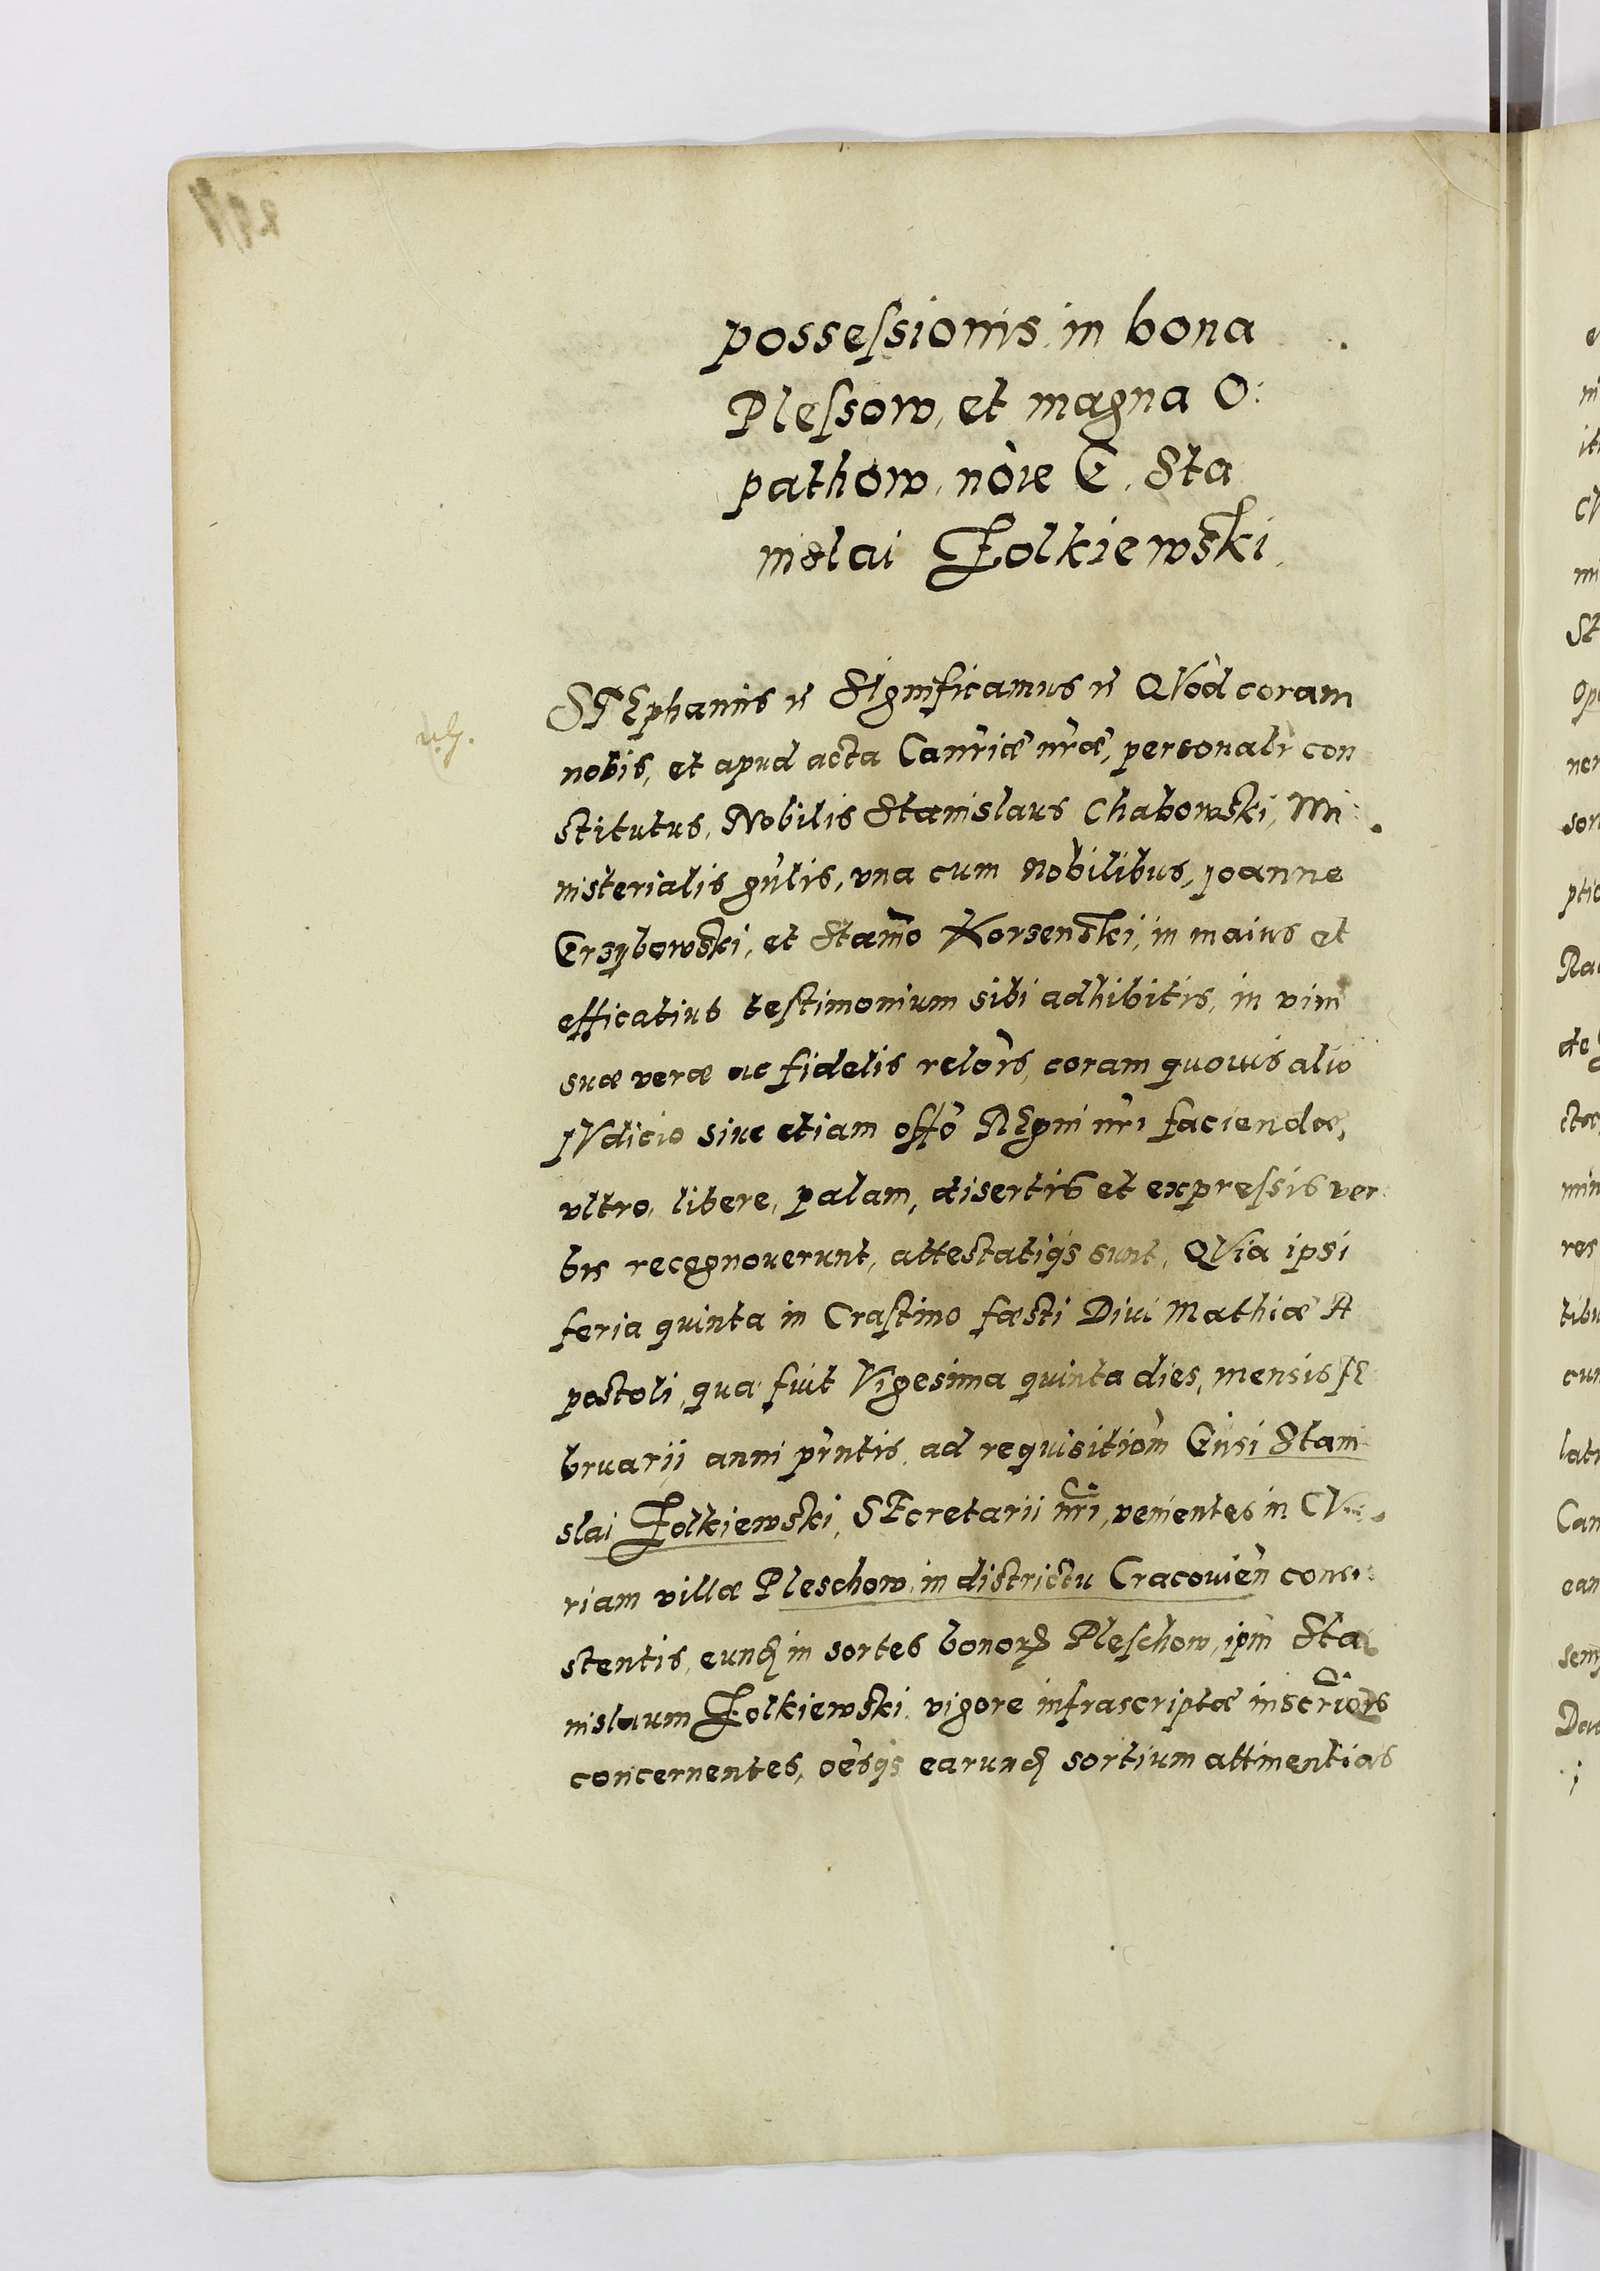 possessionis in bona
Plessow, et magna O:
pathow, nôie G. Sta
nislai Żolkiewski.
STEphanus etc Significamus etc QVòd coram
nobis, et apud acta Canriæ nræ, personalr con
stitutus, Nobilis Stanislaus Chabowski, Mi:
nisterialis gnlis, vna cum Nobilibus, Joanne
Grzybowski, et Stanno Korsenski, in maius et
efficatius testimonium sibi adhibitis, in vim
suæ veræ ac fidelis relõis, coram quouis alio
IVdicio siue etiam offo REgni nri faciendæ,
vltro, libere, palam, disertis et expressis ver
bis recognouerunt, attestatiqs sunt, QVia ipsi
feria quinta in Crastino fæsti Diui Mathiæ A
postoli, qua fuit Vigesima quinta dies, mensis FE
bruarij anni prntis, ad requisitiom Gnsi Stani
slai Żolkiewski, SEcretarii nri, venientes in CV
riam villæ Pleschow, in districtu Cracouien consi:
stentis, eund in sortes bonorum Pleschow, ipm Sta
nislaum Żolkiewski vigore infrascriptæ inscriõis
concernentes, oesqs earund sortium attinentias